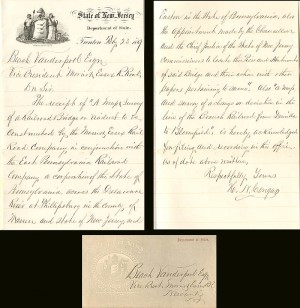 State of New Jersey
Department of State.
Trenton
Beach Vanderpool Esqr.
Vice President Morris & Essex R. Road,
Dr Sir
The receipt of "A Map & Survey
of a Railroad Bridge as ordered to be
constructed by the Morris & Essex Rail
Road Company in conjunction with
the East Pennsylvania Railroad
Company a corporation of the State of
Pennsylvania across the Delaware
River at Phillipsburg in the county of
Warren and State of New Jersey and
Easton in the State of Pennsylvania also
the appointment made by the Chancellor
and the Chief Justice of the State of New Jersey
Commissioners to locate the Piers and Abutments
of said Bridge and their oaths with other
papers pertaining to same." Also "a map
and survey of a change or deviation in the
line of the Newark Railroad from
to Bloomfield" is hereby acknowledged
for filing and recording in the office
as of date above written.
Respectfully Yours
H. N. Congar
Department of State.
Beach Vanderpool Esqr
Newark
N.J.